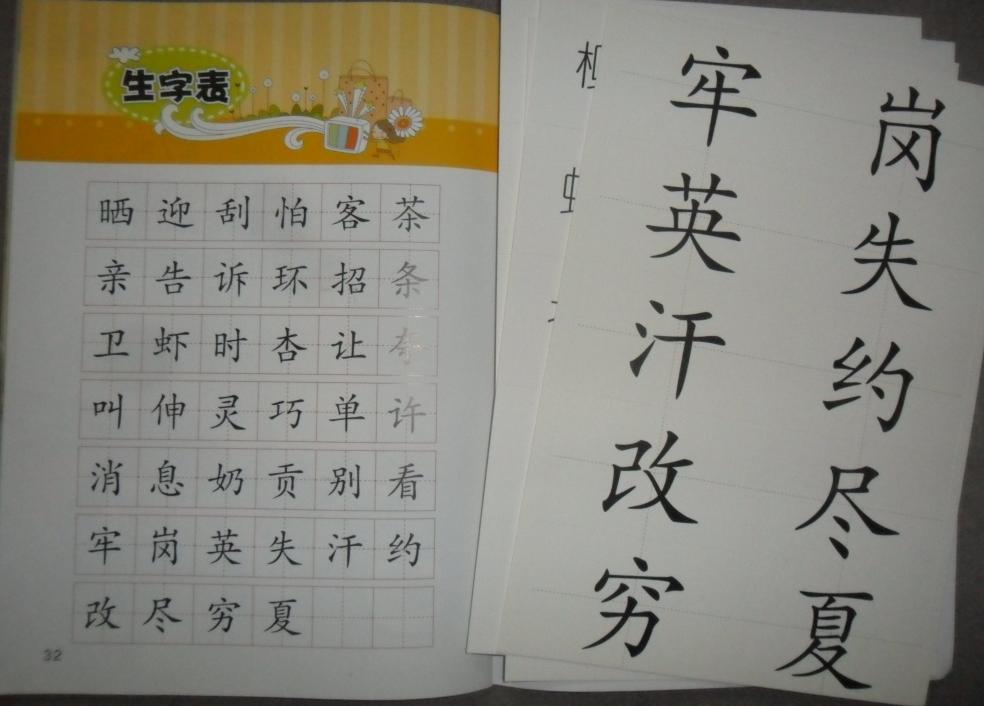 生字表
晒 迎 刮 怕 客 茶
亲 告 诉 环 招 条
卫 虾 时 杏 让
叫 伸 灵 巧 单 许
消 息 奶 贡 别 看
牢 岗 英 失 汗 约
改 尽 穷 夏
32
牢 岗
英 失
汗 约
改 尽
穷 夏